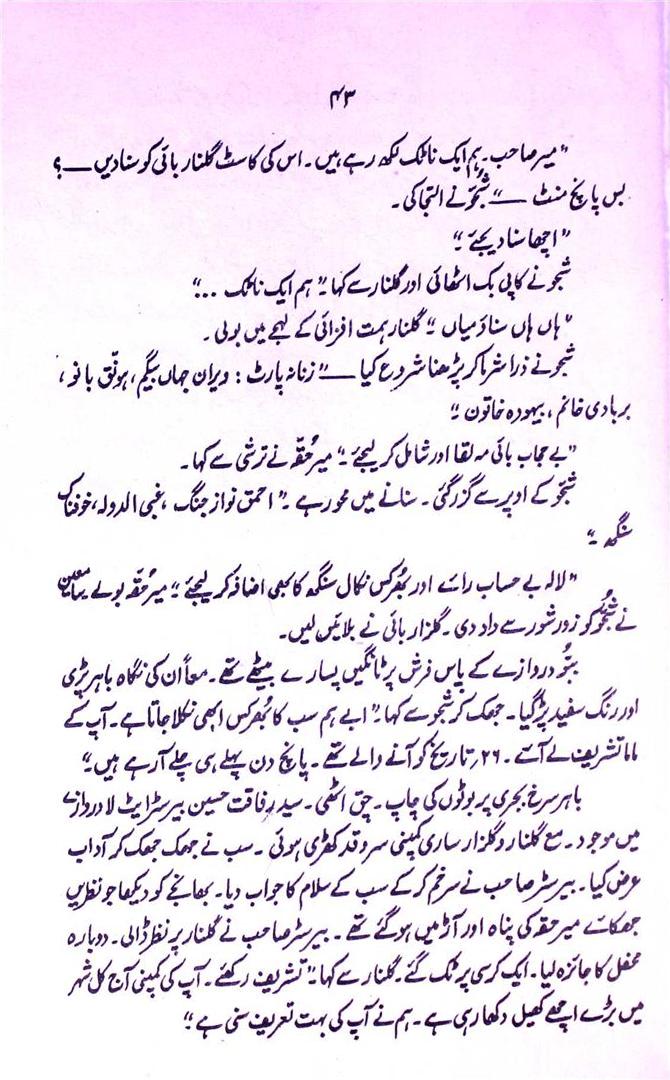 ۴۳
"میر صاحب۔ ہم ایک ناٹک لکھ رہے ہیں۔ اس کی کاسٹ گلنار بائی کو سنا دیں ——؟
بس پانچ منٹ ——" شجّو نے التجا کی۔
"اچھا سنا دیجئے۔"
شجّو نے کاپی بک اٹھائی اور گلنار سے کہا۔" ہم ایک ناٹک ..."
"ہاں ہاں سناؤ میاں۔" گلنار ہمت افزائی کے لہجے میں بولی۔
شجّو نے ذرا شرما کر پڑھنا شروع کیا ——" زنانہ پارٹ : ویران جہاں بیگم، ہونّق بانو،
بربادی خانم، بیہودہ خاتون۔"
"بے حجاب بائی مہ لقا اور شامل کر لیجئے۔" میر حُقّہ نے ترشی سے کہا۔
شجّو کے اوپر سے گزر گئی۔ سنانے میں محو رہے۔" احمق نواز جنگ، غبی الدولہ، خوفناک
سنگھ۔"
"لالہ بے حساب رائے اور بُھرکس نکال سنگھ کا بھی اضافہ کر لیجئے۔" میر حقّہ بولے۔ سامعین
نے شجّو کو زور شور سے داد دی۔ گلزار بائی نے بلائیں لیں۔
ببّو دروازے کے پاس فرش پر ٹانگیں پسارے بیٹھے تھے۔ معاً ان کی نگاہ باہر پڑی
اور رنگ سفید پڑ گیا۔ جھک کر شجو سے کہا۔" ابے ہم سب کا بُھرکس ابھی نکلا جاتا ہے۔ آپ کے
ماما تشریف لے آئے۔ ۲۶؍ تاریخ کو آنے والے تھے۔ پانچ دن پہلے ہی چلے آ رہے ہیں۔"
باہر سرخ بجری پر بوٹوں کی چاپ۔ چق اٹھی۔ سید رفاقت حسین بیرسٹر ایٹ لا دروازے
میں موجود۔ مع گلنار و گلزار ساری کمپنی سروقد کھڑی ہوئی۔ سب نے جھک جھک کر آداب
عرض کیا۔ بیرسٹر صاحب نے سر خم کر کے سب کے سلام کا جواب دیا۔ بھانجے کو دیکھا جو نظریں
جھکائے میر حقہ کی پناہ اور آڑ میں ہو گئے تھے۔ بیرسٹر صاحب نے گلنار پر نظر ڈالی۔ دوبارہ
محفل کا جائزہ لیا۔ ایک کرسی پر ٹک گئے۔ گلنار سے کہا۔" تشریف رکھئے۔ آپ کی کمپنی آج کل شہر
میں بڑے اچھے کھیل دکھا رہی ہے۔ ہم نے آپ کی بہت تعریف سنی ہے۔"